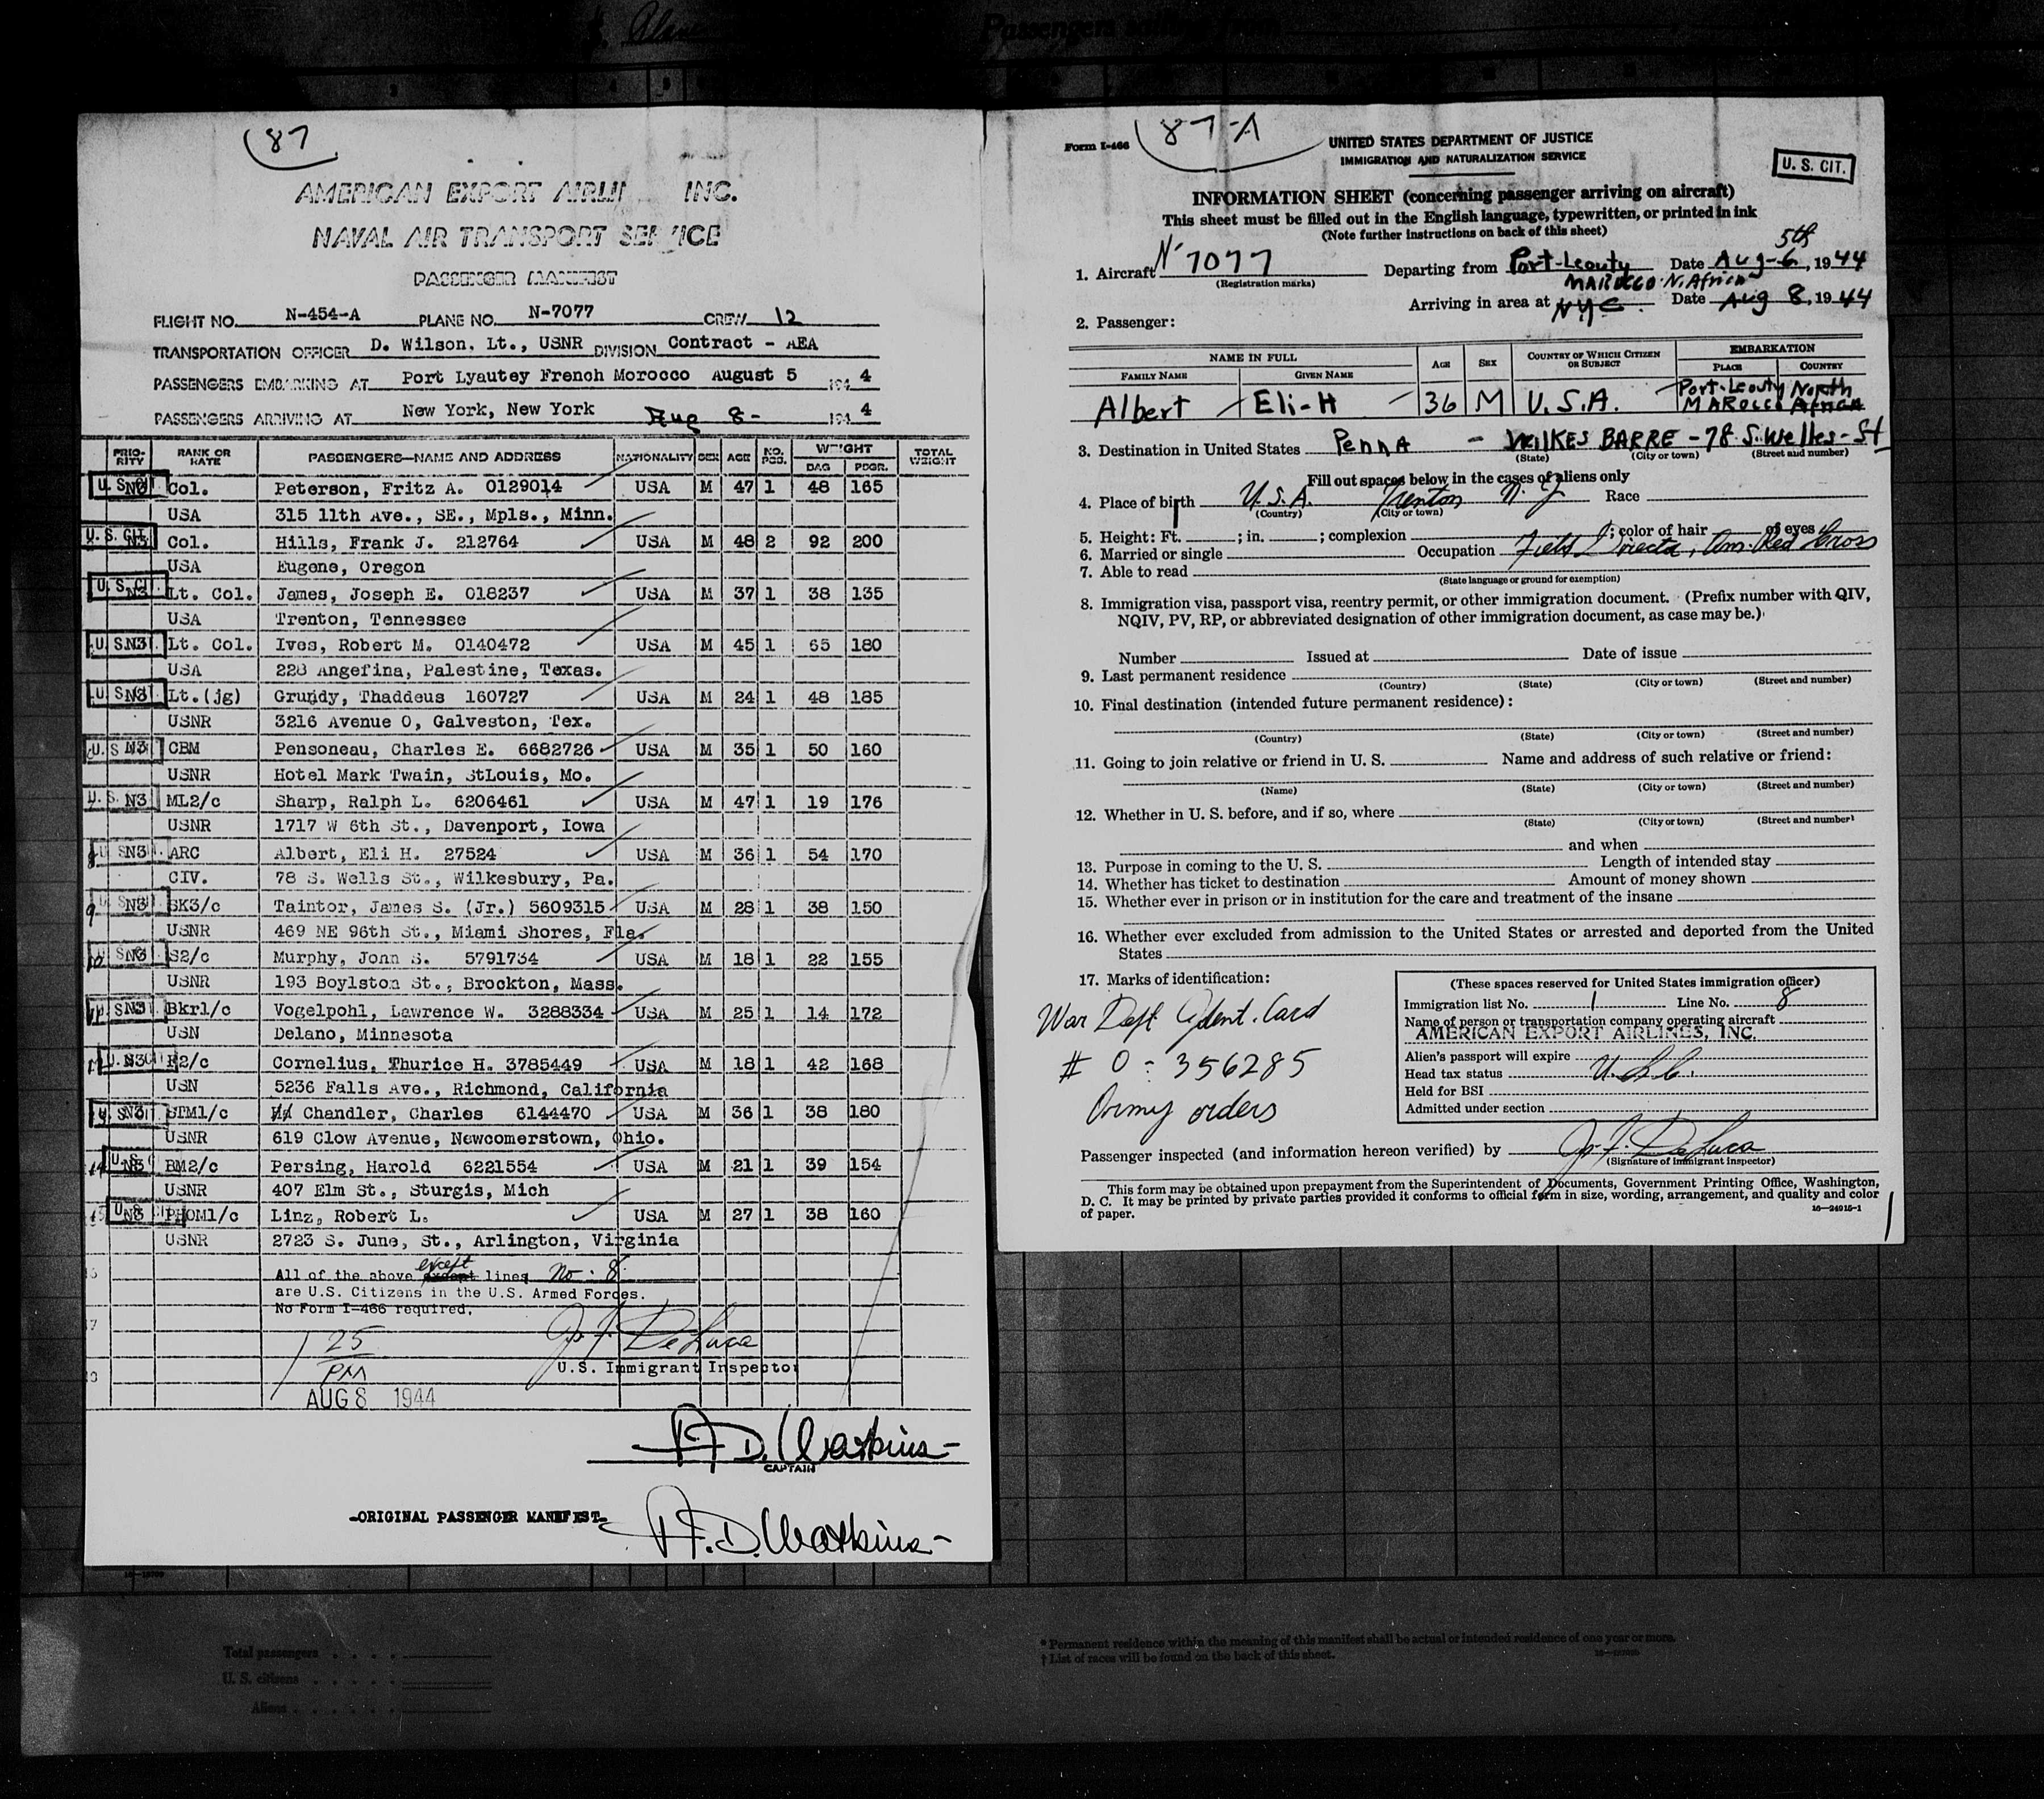 Passengers sailing from
87
AMERICAN EXPORT AIRLI INC.
NAVAL AIR TRANSPORT SER ICE
PASSENGER MANIFEST
FLIGHT NO. N-454-A PLANE NO. N-7077 CREW 12
TRANSPORTATION OFFICER D. Wilson. Lt., USNR DIVISION Contract - AEA
PASSENGERS EMBARKING AT Port Lyautey French Morocco August 5 194 4
PASSENGERS ARRIVING AT New York, New York Aug 8- 194 4
PRIO-RITY RANK OR RATE PASSENGERS—NAME AND ADDRESS NATIONALITY SEX AGE NO. PCS. WEIGHT BAG PSGR. TOTAL WEIGHT
U. S. CIT. N3 Col. Peterson, Fritz A. 0129014 USA M 47 1 48 165
USA 315 11th Ave., SE., Mpls., Minn.
U. S. CIT. N3 Col. Hills, Frank J. 212764 USA M 48 2 92 200
USA Eugene, Oregon
U. S. CIT. N3 Lt. Col. James, Joseph E. 018237 USA M 37 1 38 135
USA Trenton, Tennessee
U. S. N3 Lt. Col. Ives, Robert M. 0140472 USA M 45 1 65 180
USA 228 Angefina, Palestine, Texas.
U. S. N3 Lt.(jg) Grundy, Thaddeus 160727 USA M 24 1 48 185
USNR 3216 Avenue O, Galveston, Tex.
U. S. N3 CBM Pensoneau, Charles E. 6682726 USA M 35 1 50 160
USNR Hotel Mark Twain, StLouis, Mo.
U. S. N3 ML2/c Sharp, Ralph L. 6206461 USA M 47 1 19 176
USNR 1717 W 6th St., Davenport, Iowa
8 U. S. N3 ARC Albert, Eli H. 27524 USA M 36 1 54 170
CIV. 78 S. Wells St., Wilkesbury, Pa.
9 U. S. N3 SK3/c Taintor, James S. (Jr.) 5609315 USA M 28 1 38 150
USNR 469 NE 96th St., Miami Shores, Fla.
10 U. S. N3 S2/c Murphy, John S. 5791734 USA M 18 1 22 155
USNR 193 Boylston St., Brockton, Mass.
11 U. S. N3 Bkr1/c Vogelpohl, Lawrence W. 3288334 USA M 25 1 14 172
USN Delano, Minnesota
12 U. S. N3 F2/c Cornelius, Thurice H. 3785449 USA M 18 1 42 168
USN 5236 Falls Ave., Richmond, California
U. S. N3 STM1/c Chandler, Charles 6144470 USA M 36 1 38 180
USNR 619 Clow Avenue, Newcomerstown, Ohio.
14 U. S. N3 BM2/c Persing, Harold 6221554 USA M 21 1 39 154
USNR 407 Elm St., Sturgis, Mich
15 U. S. N3 PHOM1/c Linz, Robert L. USA M 27 1 38 160
USNR 2723 S. June, St., Arlington, Virginia
except
All of the above except lines No. 8
are U.S. Citizens in the U.S. Armed Forces.
No Form I-466 required.
1 25 PM
J. F. DeLuca
U.S. Immigrant Inspector
AUG 8 1944
D. Watkins
CAPTAIN
-ORIGINAL PASSENGER MANIFEST-
D. Watkins
Total passengers
U. S. citizens
Aliens
Form I-466
87-A
UNITED STATES DEPARTMENT OF JUSTICE
IMMIGRATION AND NATURALIZATION SERVICE
U. S. CIT.
INFORMATION SHEET (concerning passenger arriving on aircraft)
This sheet must be filled out in the English language, typewritten, or printed in ink
(Note further instructions on back of this sheet)
5th
1. Aircraft N 7077 Departing from Port-Leouty Date Aug-6, 1944
(Registration marks) MAROCCO N. Africa
Arriving in area at NYC. Date Aug 8, 1944
2. Passenger:
NAME IN FULL AGE SEX COUNTRY OF WHICH CITIZEN OR SUBJECT EMBARKATION
FAMILY NAME GIVEN NAME PLACE COUNTRY
Albert Eli-H 36 M U.S.A. Port-Leouty MAROCCO North Africa
3. Destination in United States PennA - WILKES BARRE - 78 S. Welles-St
(State) (City or town) (Street and number)
Fill out spaces below in the cases of aliens only
4. Place of birth U.S.A. Trenton N. J Race
(Country) (City or town)
5. Height: Ft. ; in. ; complexion ; color of hair of eyes
6. Married or single Occupation Field Director, Am. Red Cross
7. Able to read
(State language or ground for exemption)
8. Immigration visa, passport visa, reentry permit, or other immigration document. (Prefix number with QIV,
NQIV, PV, RP, or abbreviated designation of other immigration document, as case may be.)
Number Issued at Date of issue
9. Last permanent residence
(Country) (State) (City or town) (Street and number)
10. Final destination (intended future permanent residence):
(Country) (State) (City or town) (Street and number)
11. Going to join relative or friend in U. S. Name and address of such relative or friend:
(Name) (State) (City or town) (Street and number)
12. Whether in U. S. before, and if so, where
(State) (City or town) (Street and number)
and when
13. Purpose in coming to the U. S. Length of intended stay
14. Whether has ticket to destination Amount of money shown
15. Whether ever in prison or in institution for the care and treatment of the insane
16. Whether ever excluded from admission to the United States or arrested and deported from the United
States
17. Marks of identification:
War Dept Ident. Card
# O-356285
Army orders
(These spaces reserved for United States immigration officer)
Immigration list No. 1 Line No. 8
Name of person or transportation company operating aircraft
AMERICAN EXPORT AIRLINES, INC.
Alien's passport will expire
Head tax status U.S.C.
Held for BSI
Admitted under section
Passenger inspected (and information hereon verified) by J. F. DeLuca
(Signature of immigrant inspector)
This form may be obtained upon prepayment from the Superintendent of Documents, Government Printing Office, Washington,
D. C. It may be printed by private parties provided it conforms to official form in size, wording, arrangement, and quality and color
of paper. 16—24915-1
* Permanent residence within the meaning of this manifest shall be actual or intended residence of one year or more.
† List of races will be found on the back of this sheet.